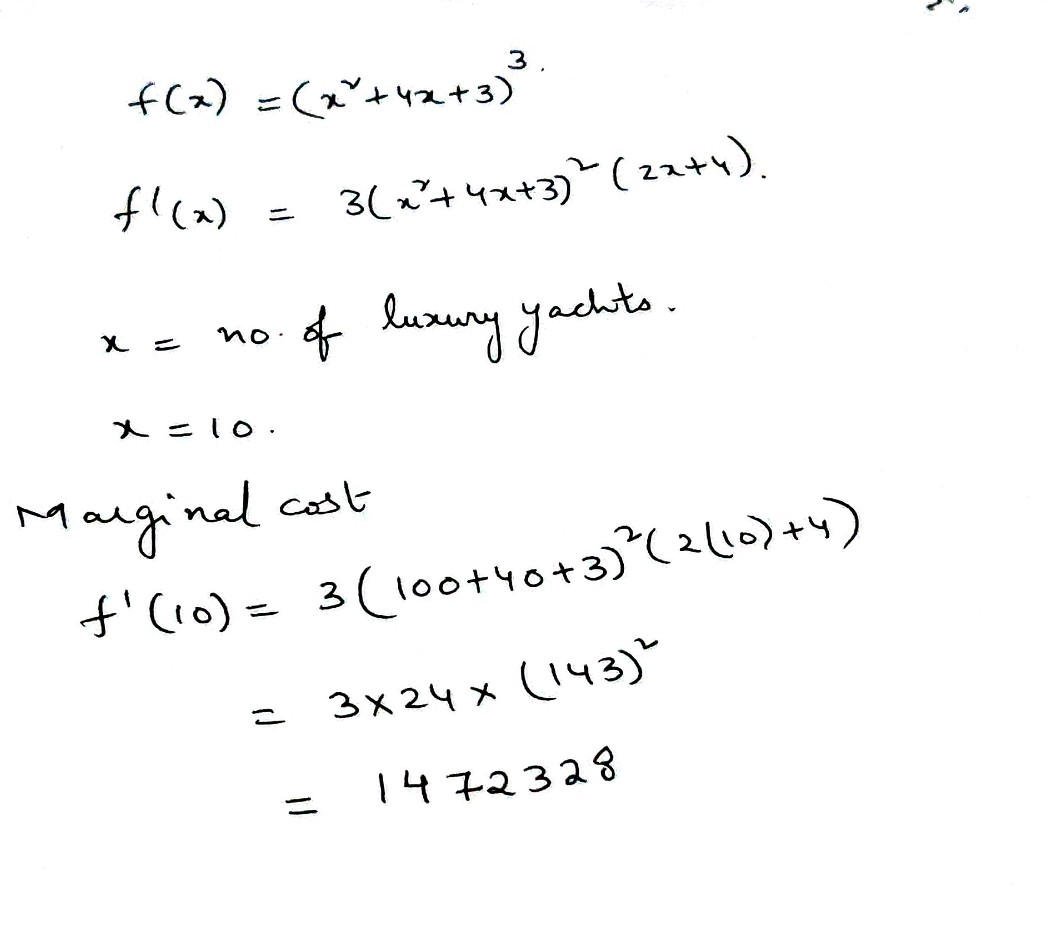 f(x) = (x²+4x+3)³.
f'(x) = 3(x²+4x+3)² (2x+4).
x = no. of luxury yachts.
x = 10.
Marginal cost
f'(10) = 3(100+40+3)²(2(10)+4)
= 3×24×(143)²
= 1472328